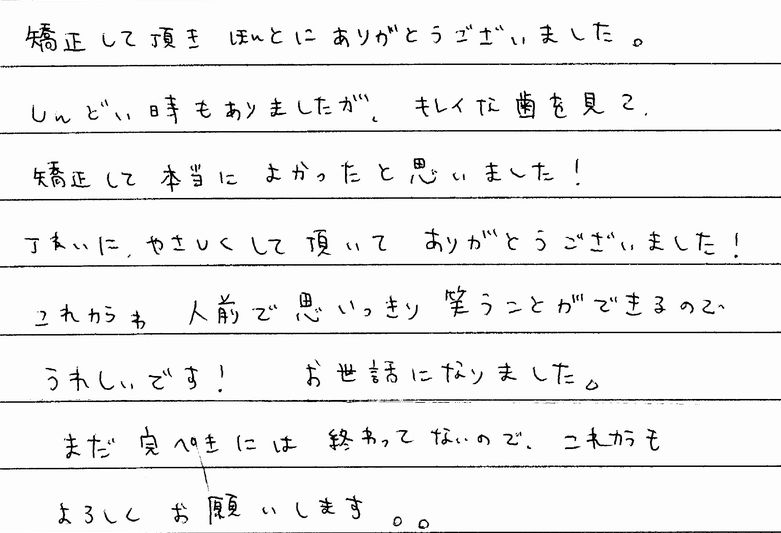 矯正して頂き ほんとにありがとうございました。
しんどい時もありましたが、キレイな歯を見て、
矯正して本当によかったと思いました！
丁ねいに、やさしくして頂いて ありがとうございました！
これからは 人前で思いっきり笑うことができるので
うれしいです！ お世話になりました。
まだ完ぺきには終わってないので、これからも
よろしくお願いします。。